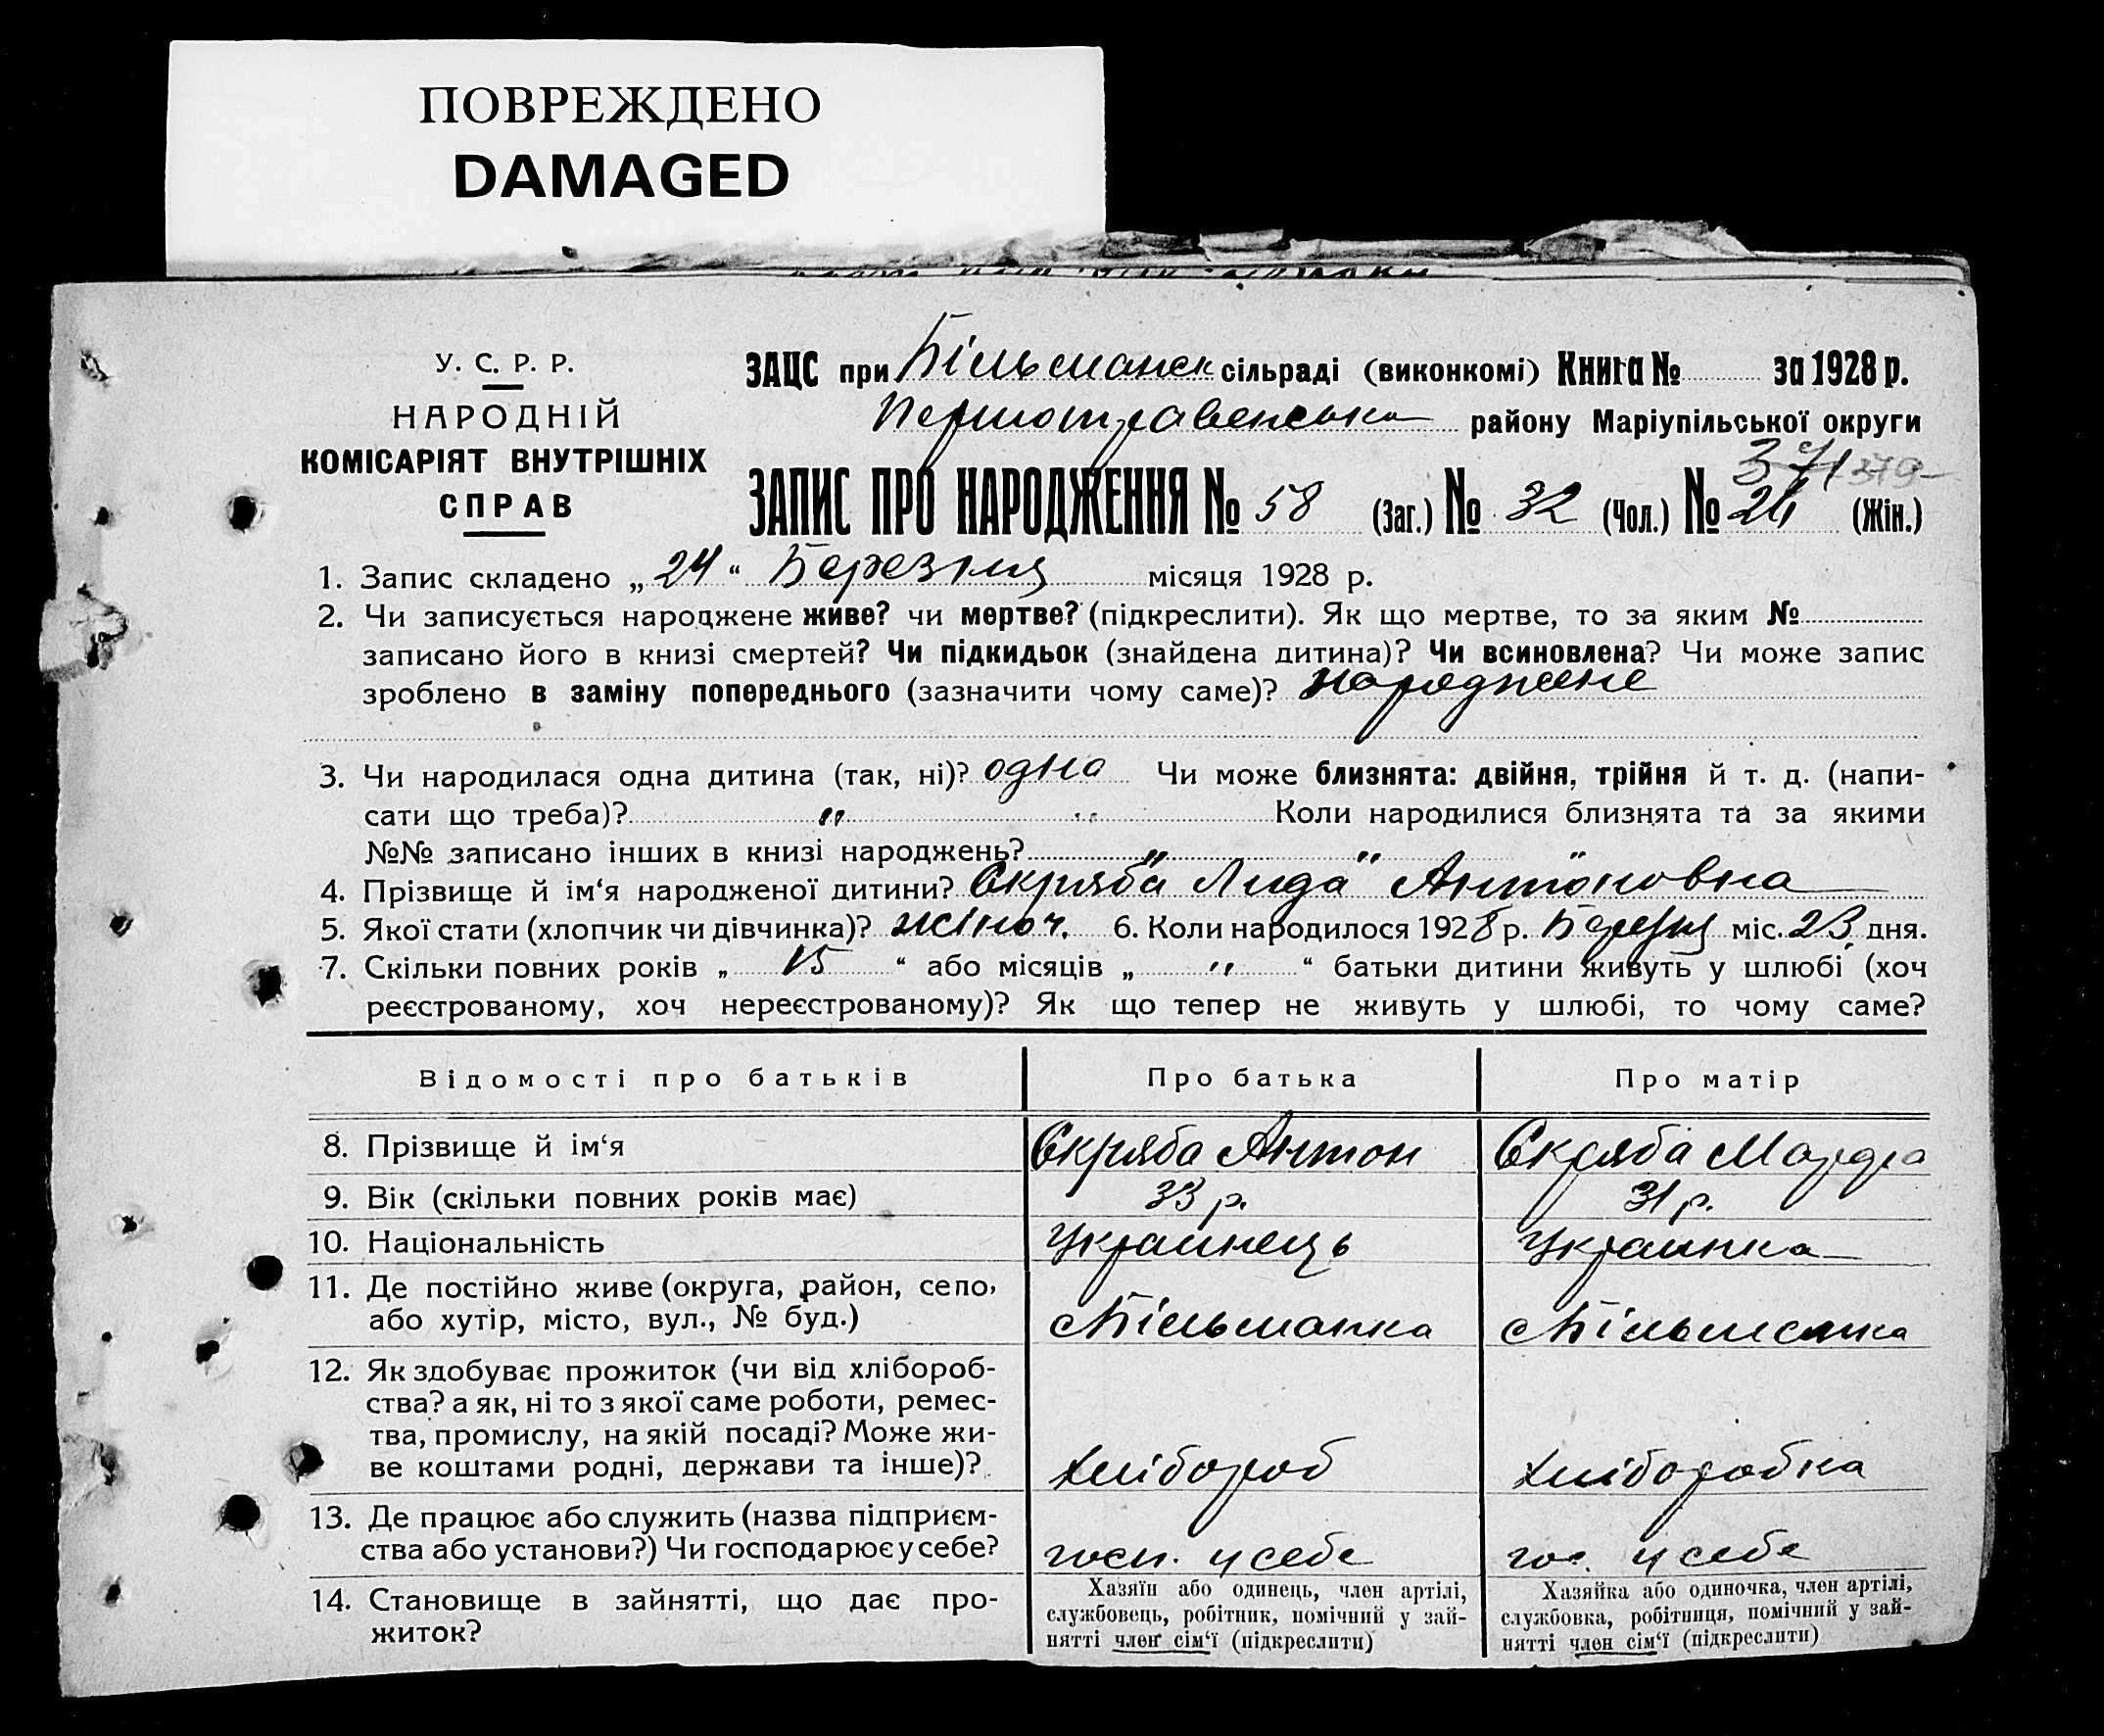 ПОВРЕЖДЕНО
DAMAGED
У. С. Р. Р.
НАРОДНІЙ
КОМІСАРІЯТ ВНУТРІШНІХ
СПРАВ
ЗАЦС при Більманск сільраді (виконкомі) Книга № за 1928 р.
Першотравенська району Маріупільської округи
371 379
ЗАПИС ПРО НАРОДЖЕННЯ № 58 (Заг.) № 32 (Чол.) № 26 (Жін.)
1. Запис складено „ 24 “ Березня місяця 1928 р.
2. Чи записується народжене живе? чи мертве? (підкреслити). Як що мертве, то за яким №
записано його в книзі смертей? Чи підкидьок (знайдена дитина)? Чи всиновлена? Чи може запис
зроблено в заміну попереднього (зазначити чому саме)? Народжене
3. Чи народилася одна дитина (так, ні)? одна Чи може близнята: двійня, трійня й т. д. (напи-
сати що треба)? „ „ Коли народилися близнята та за якими
№№ записано інших в книзі народжень? „ „ „
4. Прізвище й ім‘я народженої дитини? Скряба Лида Антоновна
5. Якої стати (хлопчик чи дівчинка)? жіноч. 6. Коли народилося 1928 р. Березня міс. 23 дня.
7. Скільки повних років „ 15 “ або місяців „ „ “ батьки дитини живуть у шлюбі (хоч
реєстрованому, хоч нереєстрованому)? Як що тепер не живуть у шлюбі, то чому саме?
Відомості про батьків Про батька Про матір
8. Прізвище й ім‘я Скряба Антон Скряба Марфа
9. Вік (скільки повних років має) 33 р. 31 р.
10. Національність Украинець Украинка
11. Де постійно живе (округа, район, село,
або хутір, місто, вул., № буд.) с Більманка с Більманка
12. Як здобуває прожиток (чи від хлібороб-
ства? а як, ні то з якої саме роботи, ремес-
тва, промислу, на якій посаді? Може жи-
ве коштами родні, держави та інше)? хлібороб хліборобка
13. Де працює або служить (назва підприєм-
ства або установи?) Чи господарює у себе? госп. у себе гос. у себе
14. Становище в зайнятті, що дає про-
житок?
Хазяїн або одинець, член артілі,
службовець, робітник, помічний у зай-
нятті член сім‘ї (підкреслити)
Хазяйка або одиночка, член артілі,
службовка, робітниця, помічний у зай-
нятті член сім‘ї (підкреслити)